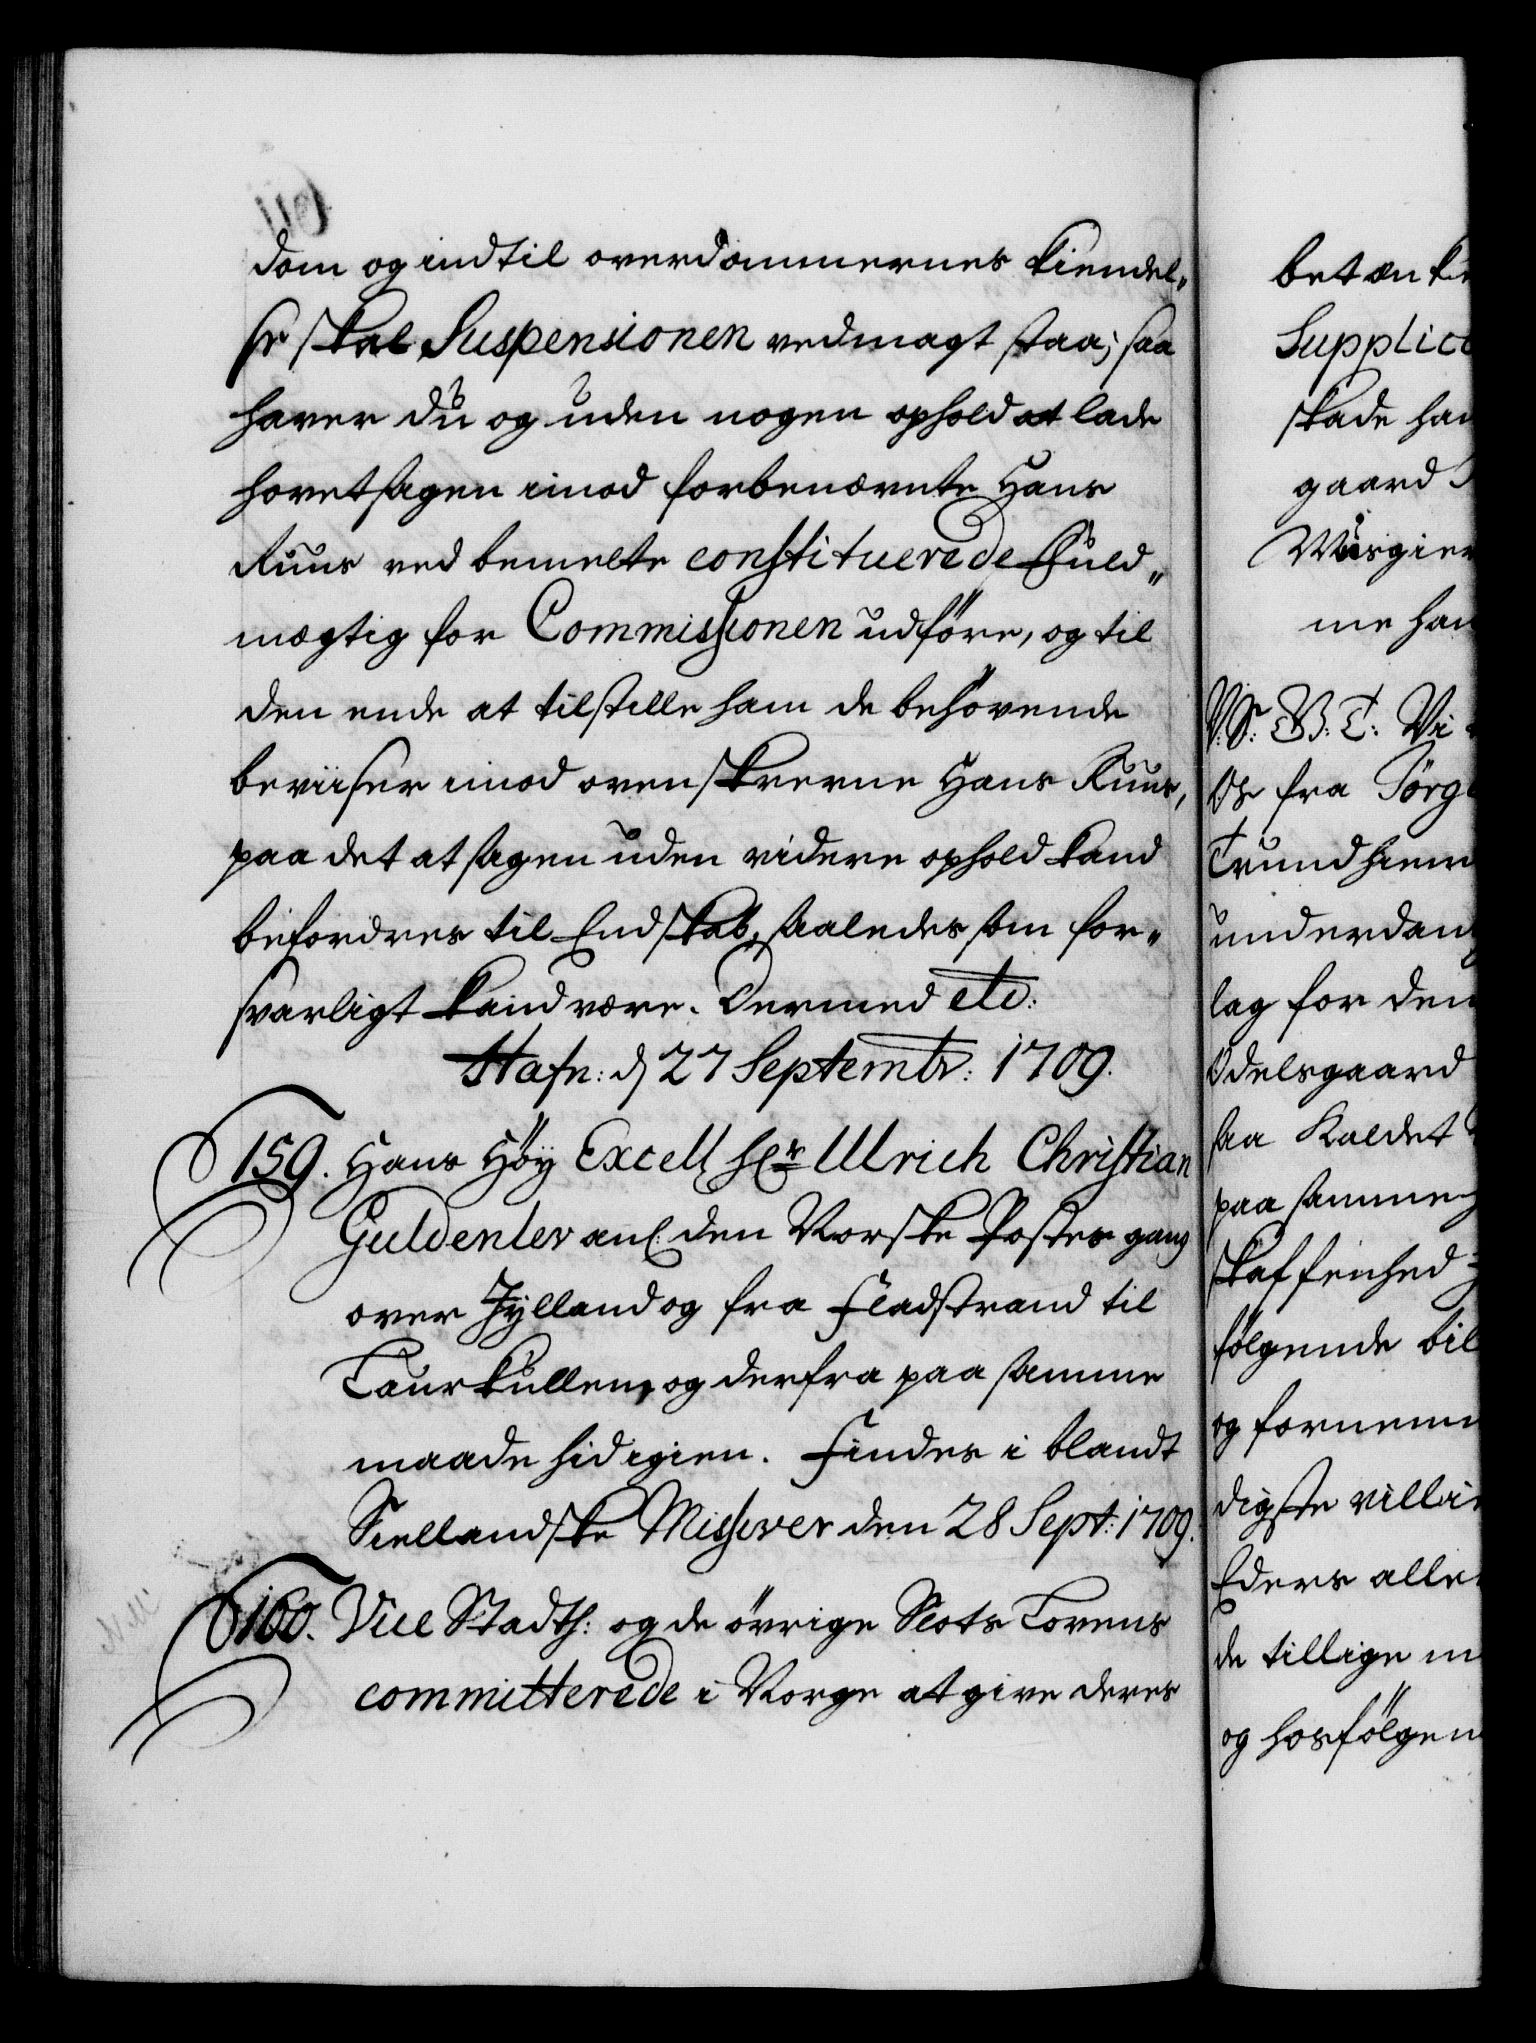 dom og indtil overdommernes kiendel„
se skal Suspensionen ved magt staa; saa
haver du og uden nogen ophold at lade
hovetsagen imod forbenævnte Hans
Ruus ved bemelte constituerede Fuld„
mægtig for Commissionen udføre, og til
den ende at tilstille ham de behøvende
beviiser imod ovenskrevne Hans Ruus,
paa det at sagen uden videre ophold kand
befordres til Endskab, saaledes som for„
svarligt kand være. Dermed etc:
Hafn: d 27 Septembr: 1709.
159. Hans Høy Excell hr Ulrich Christian
Guldenlev anl. den Norske Postes gang
over Jylland og fra Fladstrand til
Laurkullen, og derfra paa samme
maade hid igien. Findes i blandt
Siellandske Missiver den 28 Sept: 1709.
160. Vice Stadth: og de øvrige Slots Lovens
committerede i Norge at give deres
betænk
Supplic
skade han
gaard
Wisgier
me han
V. S. G. T. Vi
Os fra Jørg
Trundhiem
underdan
lag for den
Odelsgaard
saa kaldet
paa samme
skaffenhed
følgende bil
og fornem
digste villi
Eders alle
de tillige m
og hosfølgen